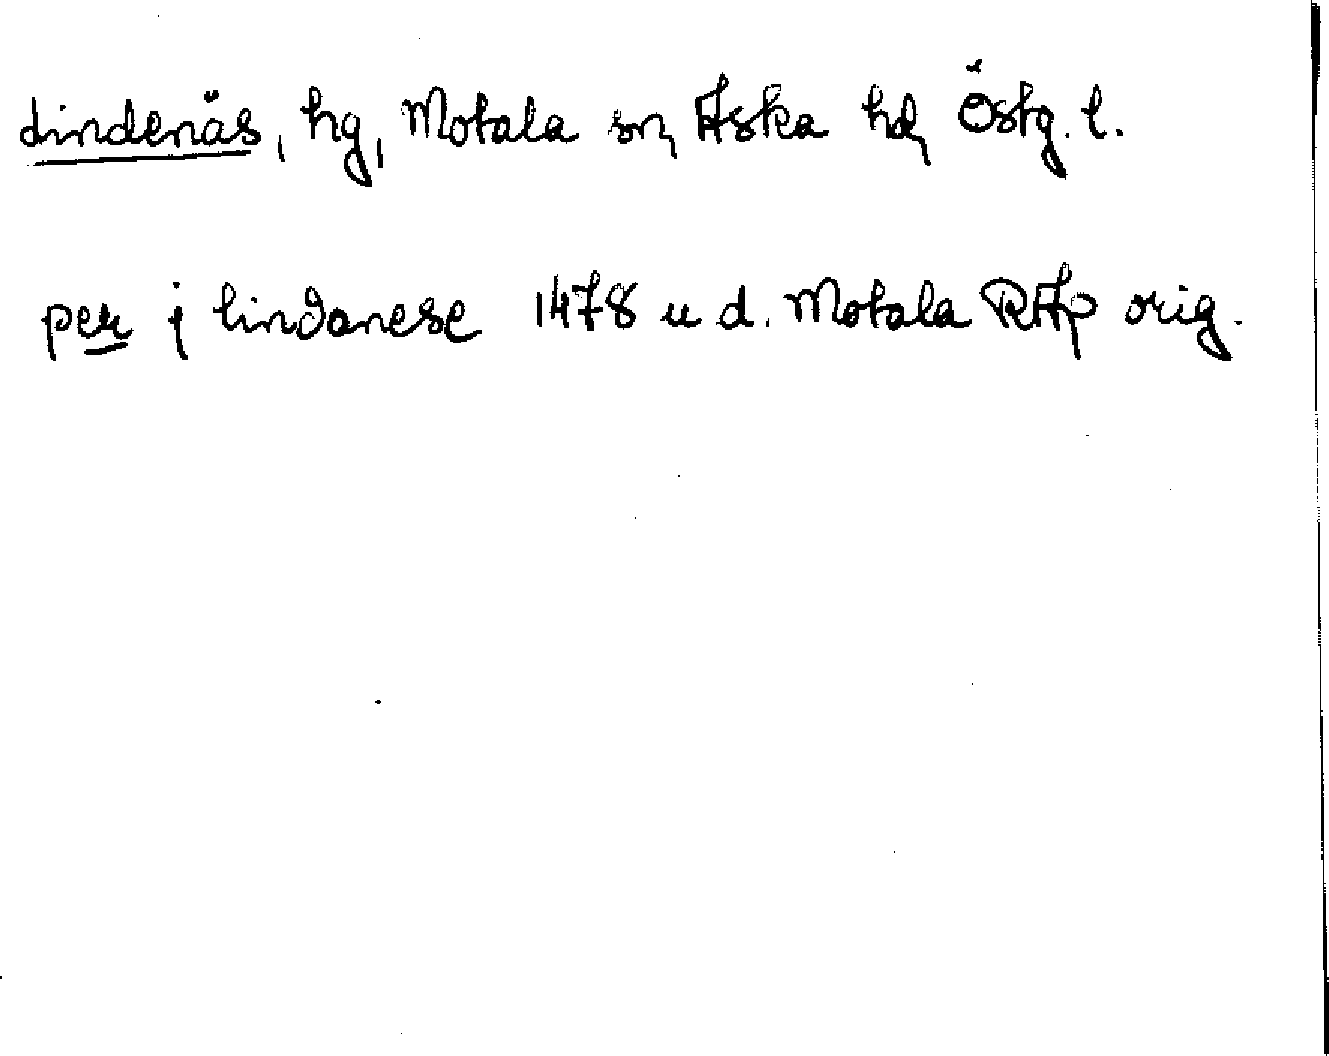 Lindenäs, hg, Motala sn, Aska hd, Östg. l.
per j lindanese 1478 u d. Motala RAp orig.